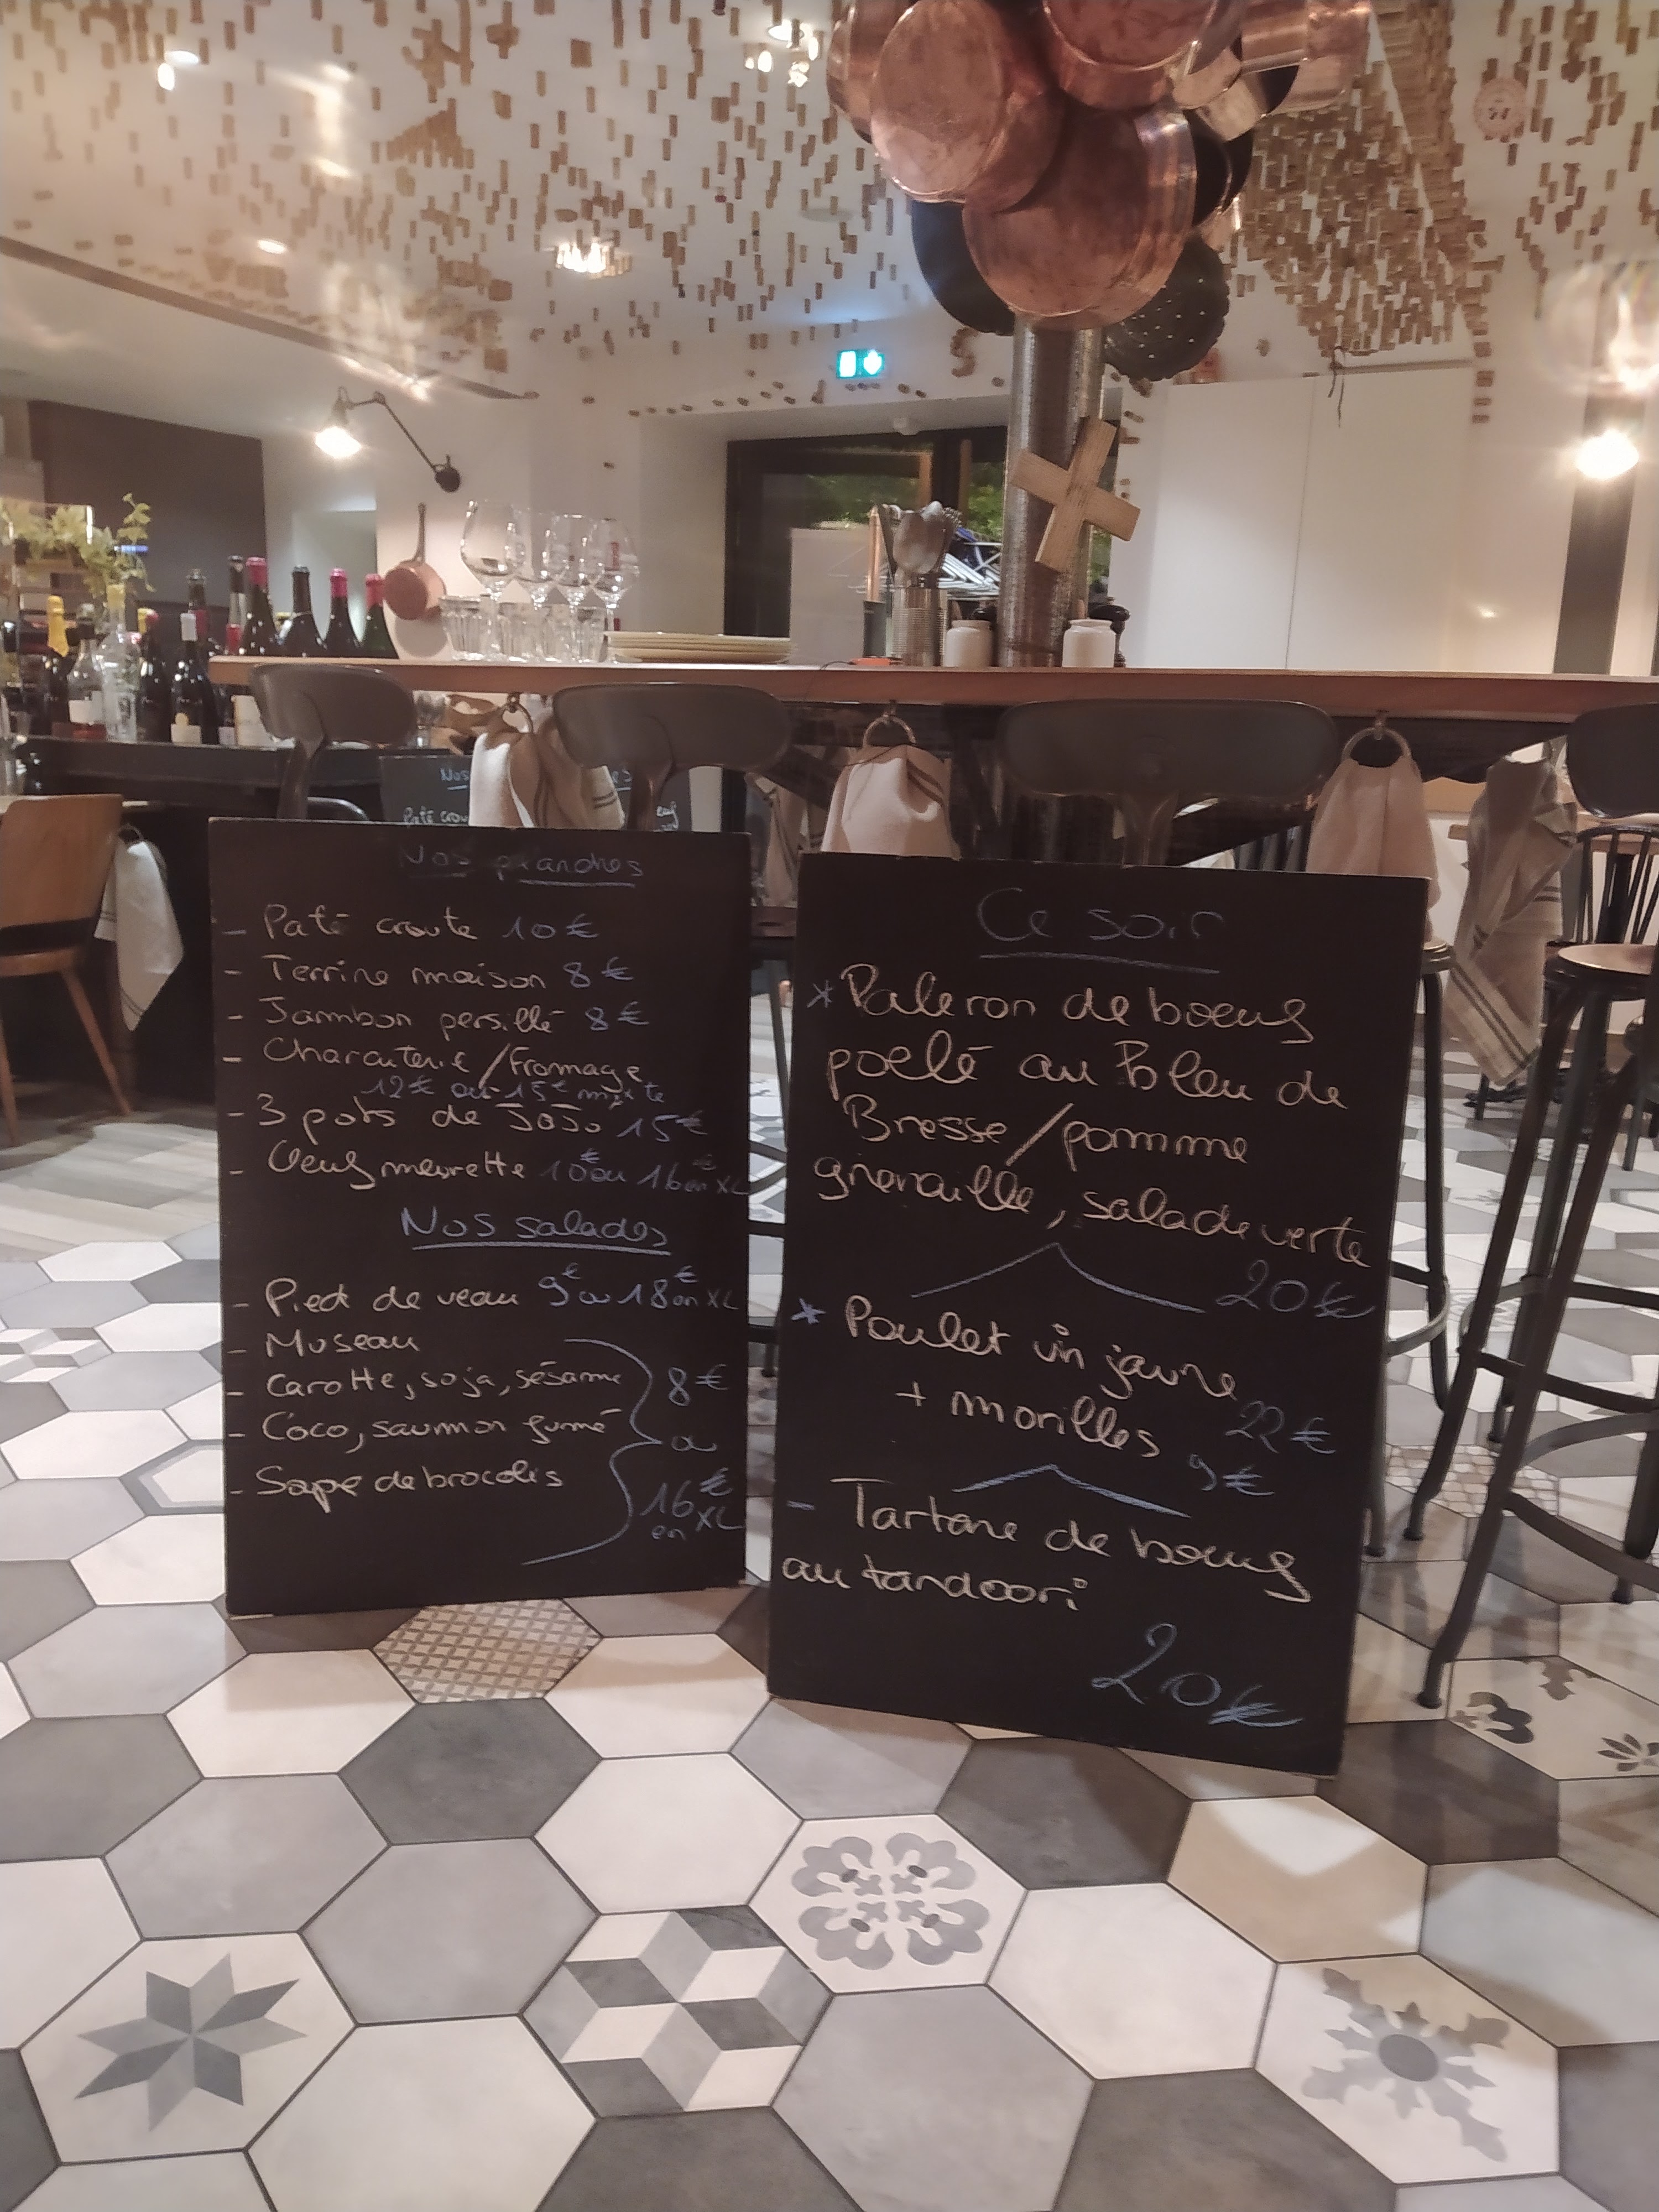 Nos planches
- Paté croute 10€
- Terrine maison 8€
- Jambon persillé 8€
- Charcuterie/Fromage
12€ ou 15€ mixte
- 3 pots de JoJo 15€
- Oeuf meurette 10€ou 16€en XL
Nos salades
- Pied de veau 9€ou 18€en XL
- Museau
- Carotte, soja, sésame 8€
- Coco, saumon fumé ou
- Sape de brocolis 16€
en XL
Ce soir
* Paleron de boeuf
poelé au Bleu de
Bresse/pomme
grenaille, salade verte
20€
* Poulet vin jaune
22€
+ morilles 9€
- Tartare de boeuf
au tandoori
20€
Nos
Paté crou